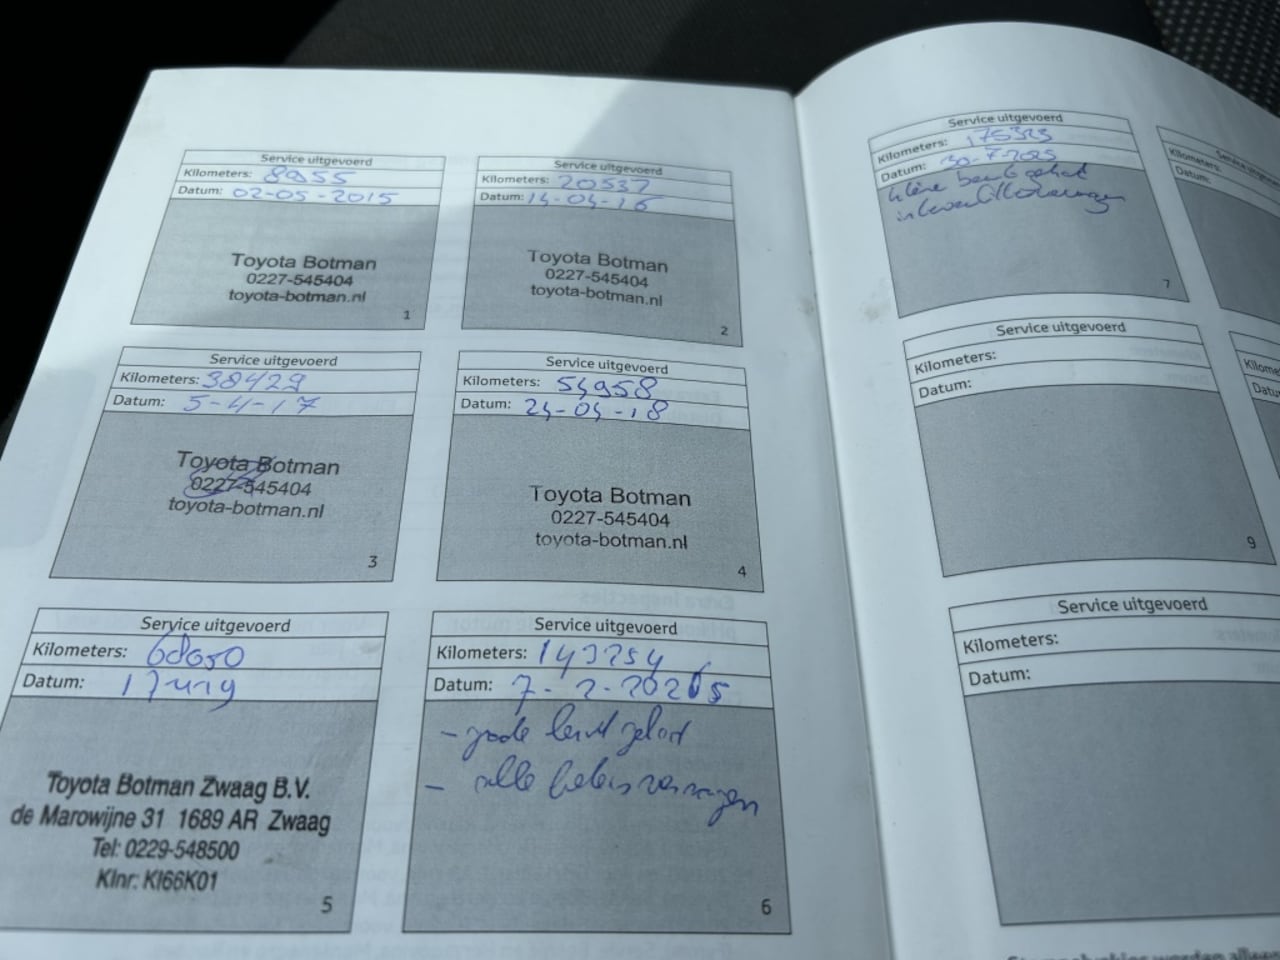 Service uitgevoerd
Kilometers: 8955
Datum: 02-05-2015
Toyota Botman
0227-545404
toyota-botman.nl
1
Service uitgevoerd
Kilometers: 20537
Datum: 14-04-16
Toyota Botman
0227-545404
toyota-botman.nl
2
Service uitgevoerd
Kilometers: 38429
Datum: 5-4-17
Toyota Botman
0227-545404
toyota-botman.nl
3
Service uitgevoerd
Kilometers: 54958
Datum: 24-04-18
Toyota Botman
0227-545404
toyota-botman.nl
4
Service uitgevoerd
Kilometers: 68650
Datum:
Toyota Botman Zwaag B.V.
de Marowijne 31 1689 AR Zwaag
Tel: 0229-548500
Klnr: KI66K01
5
Service uitgevoerd
Kilometers: 143254
Datum: 7-2-2025
- grote beurt gehad
- alle vervangen
6
Service uitgevoerd
Kilometers: 175323
Datum: 30-7-2025
kleine beurt gehad
7
Service uitgevoerd
Kilometers:
Datum:
Service uitgevoerd
Kilometers:
Datum:
9
Service uitgevoerd
Kilometers:
Datum: